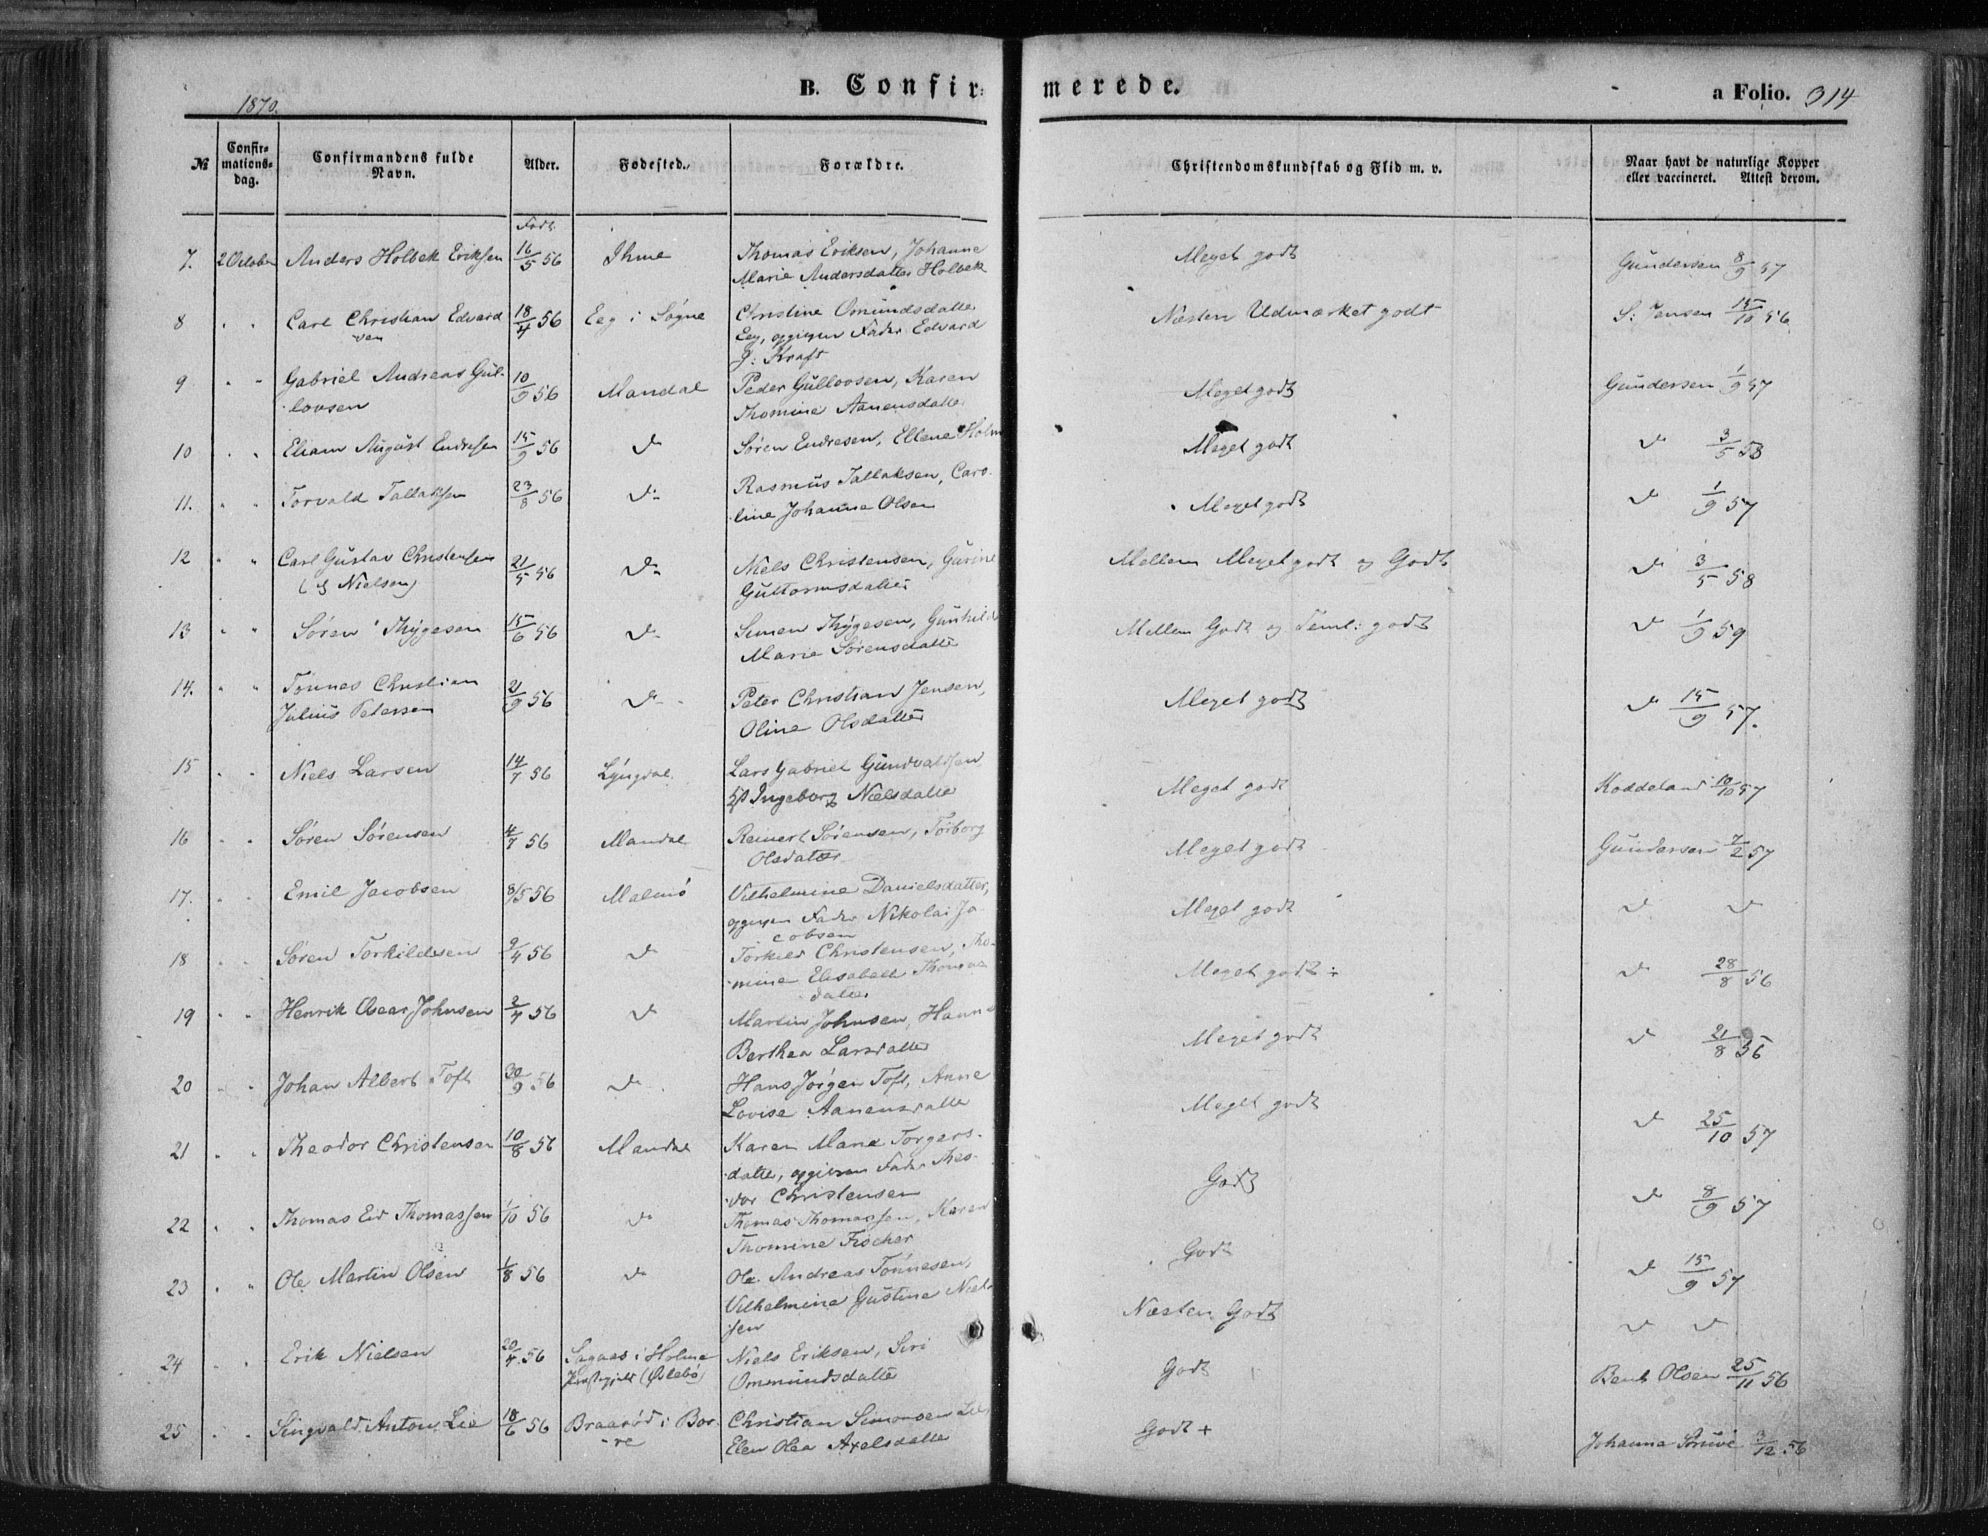 B. Confir-merede.
a Folio. 314
1870.
№ Confir-mations-dag. Confirmandens fulde Navn. Alder. Fødested. Forældre. Christendomskundskab og Flid m. v. Naar havt de naturlige Kopper eller vaccineret. Attest derom.
Født
7. 2 October Anders Holbek Eriksen 16/5 56 Ihme Thomas Eriksen, Johanne Marie Andersdatter Holbek Meget godt Gundersen 8/9 57
8 " " Carl Christian Edvardsen 18/4 56 Eeg i Søgne Christine Omundsdatter Eeg, opgiven Fader Edvard G: Kraft Næsten Udmærket godt S: Jensen 15/10 56
9 " " Gabriel Andreas Gullovsen 10/9 56 Mandal Peder Gullovsen, Karen Thomine Aanensdatter Meget godt Gundersen 1/9 57
10 " " Eliam August Endresen 15/9 56 do Søren Endresen, Ellene Holm Meget godt do 3/5 58
11. " " Torvald Tallaksen 23/8 56 do Rasmus Tallaksen, Caroline Johanne Olsen Meget godt do 1/9 57
12 " " Carl Gustav Christensen (ell Nielsen) 21/5 56 do Niels Christensen, Gurine Guttormsdatter Mellem Meget godt og Godt do 3/5 58
13 " " Søren Thygesen 15/6 56 do Simen Thygesen, Gunhild Marie Sørensdatter Mellem Godt og Teml: godt do 1/9 59
14. " " Tønnes Christian Julius Petersen 21/9 56 do Peter Christian Jensen, Oline Olsdatter Meget godt do 15/9 57.
15 " " Niels Larsen 14/7 56 Lyngdal Lars Gabriel Gundvaldsen Ingeborg Nielsdatter Meget godt Koddeland 10/10 57
16 " " Søren Sørensen 4/7 56 Mandal Reinert Sørensen, Torborg Olsdatter Meget godt Gundersen 7/2 57
17. " " Emil Jacobsen 8/5 56 Malmø Vilhelmine Danielsdatter, opgiven Fader Nikolai Jacobsen Meget godt do do
18 " " Søren Torkildsen 9/4 56 do Torkild Christensen, Thomine Elisabeth Thomasdatter Meget godt ÷ do 28/8 56
19 " " Henrik Oscar Johnsen 2/4 56 do Martin Johnsen, Hanne Berthea Larsdatter Meget godt do 21/8 56
20 " " Johan Albert Toft 30/9 56 do Hans Jørgen Toft, Anne Lovise Aanensdatter Meget godt do 25/10 57
21 " " Theodor Christensen 10/8 56 Mandal Karen Marie Torgersdatter, opgiven Fader Theodor Christensen Godt do 8/9 57
22 " " Thomas Eid Thomassen 1/10 56 do Thomas Thomassen, Karen Thomine Fischer Godt do 15/9 57
23 " " Ole Martin Olsen 1/8 56 do Ole Andreas Tønnesen, Vilhelmine Gustine Nielsen Næsten Godt do do
24 " " Erik Nielsen 20/4 56 Sagaas i Holme Præstegjeld (Øslebø) Niels Eriksen, Siri Ommundsdatter Godt Bent Olsen 25/11 56
25 " " Singvald Anton Lie 18/6 56 Braarød i Borre Christian Simonsen Lie, Elen Olea Axelsdatter Godt + Johanna 3/12 56